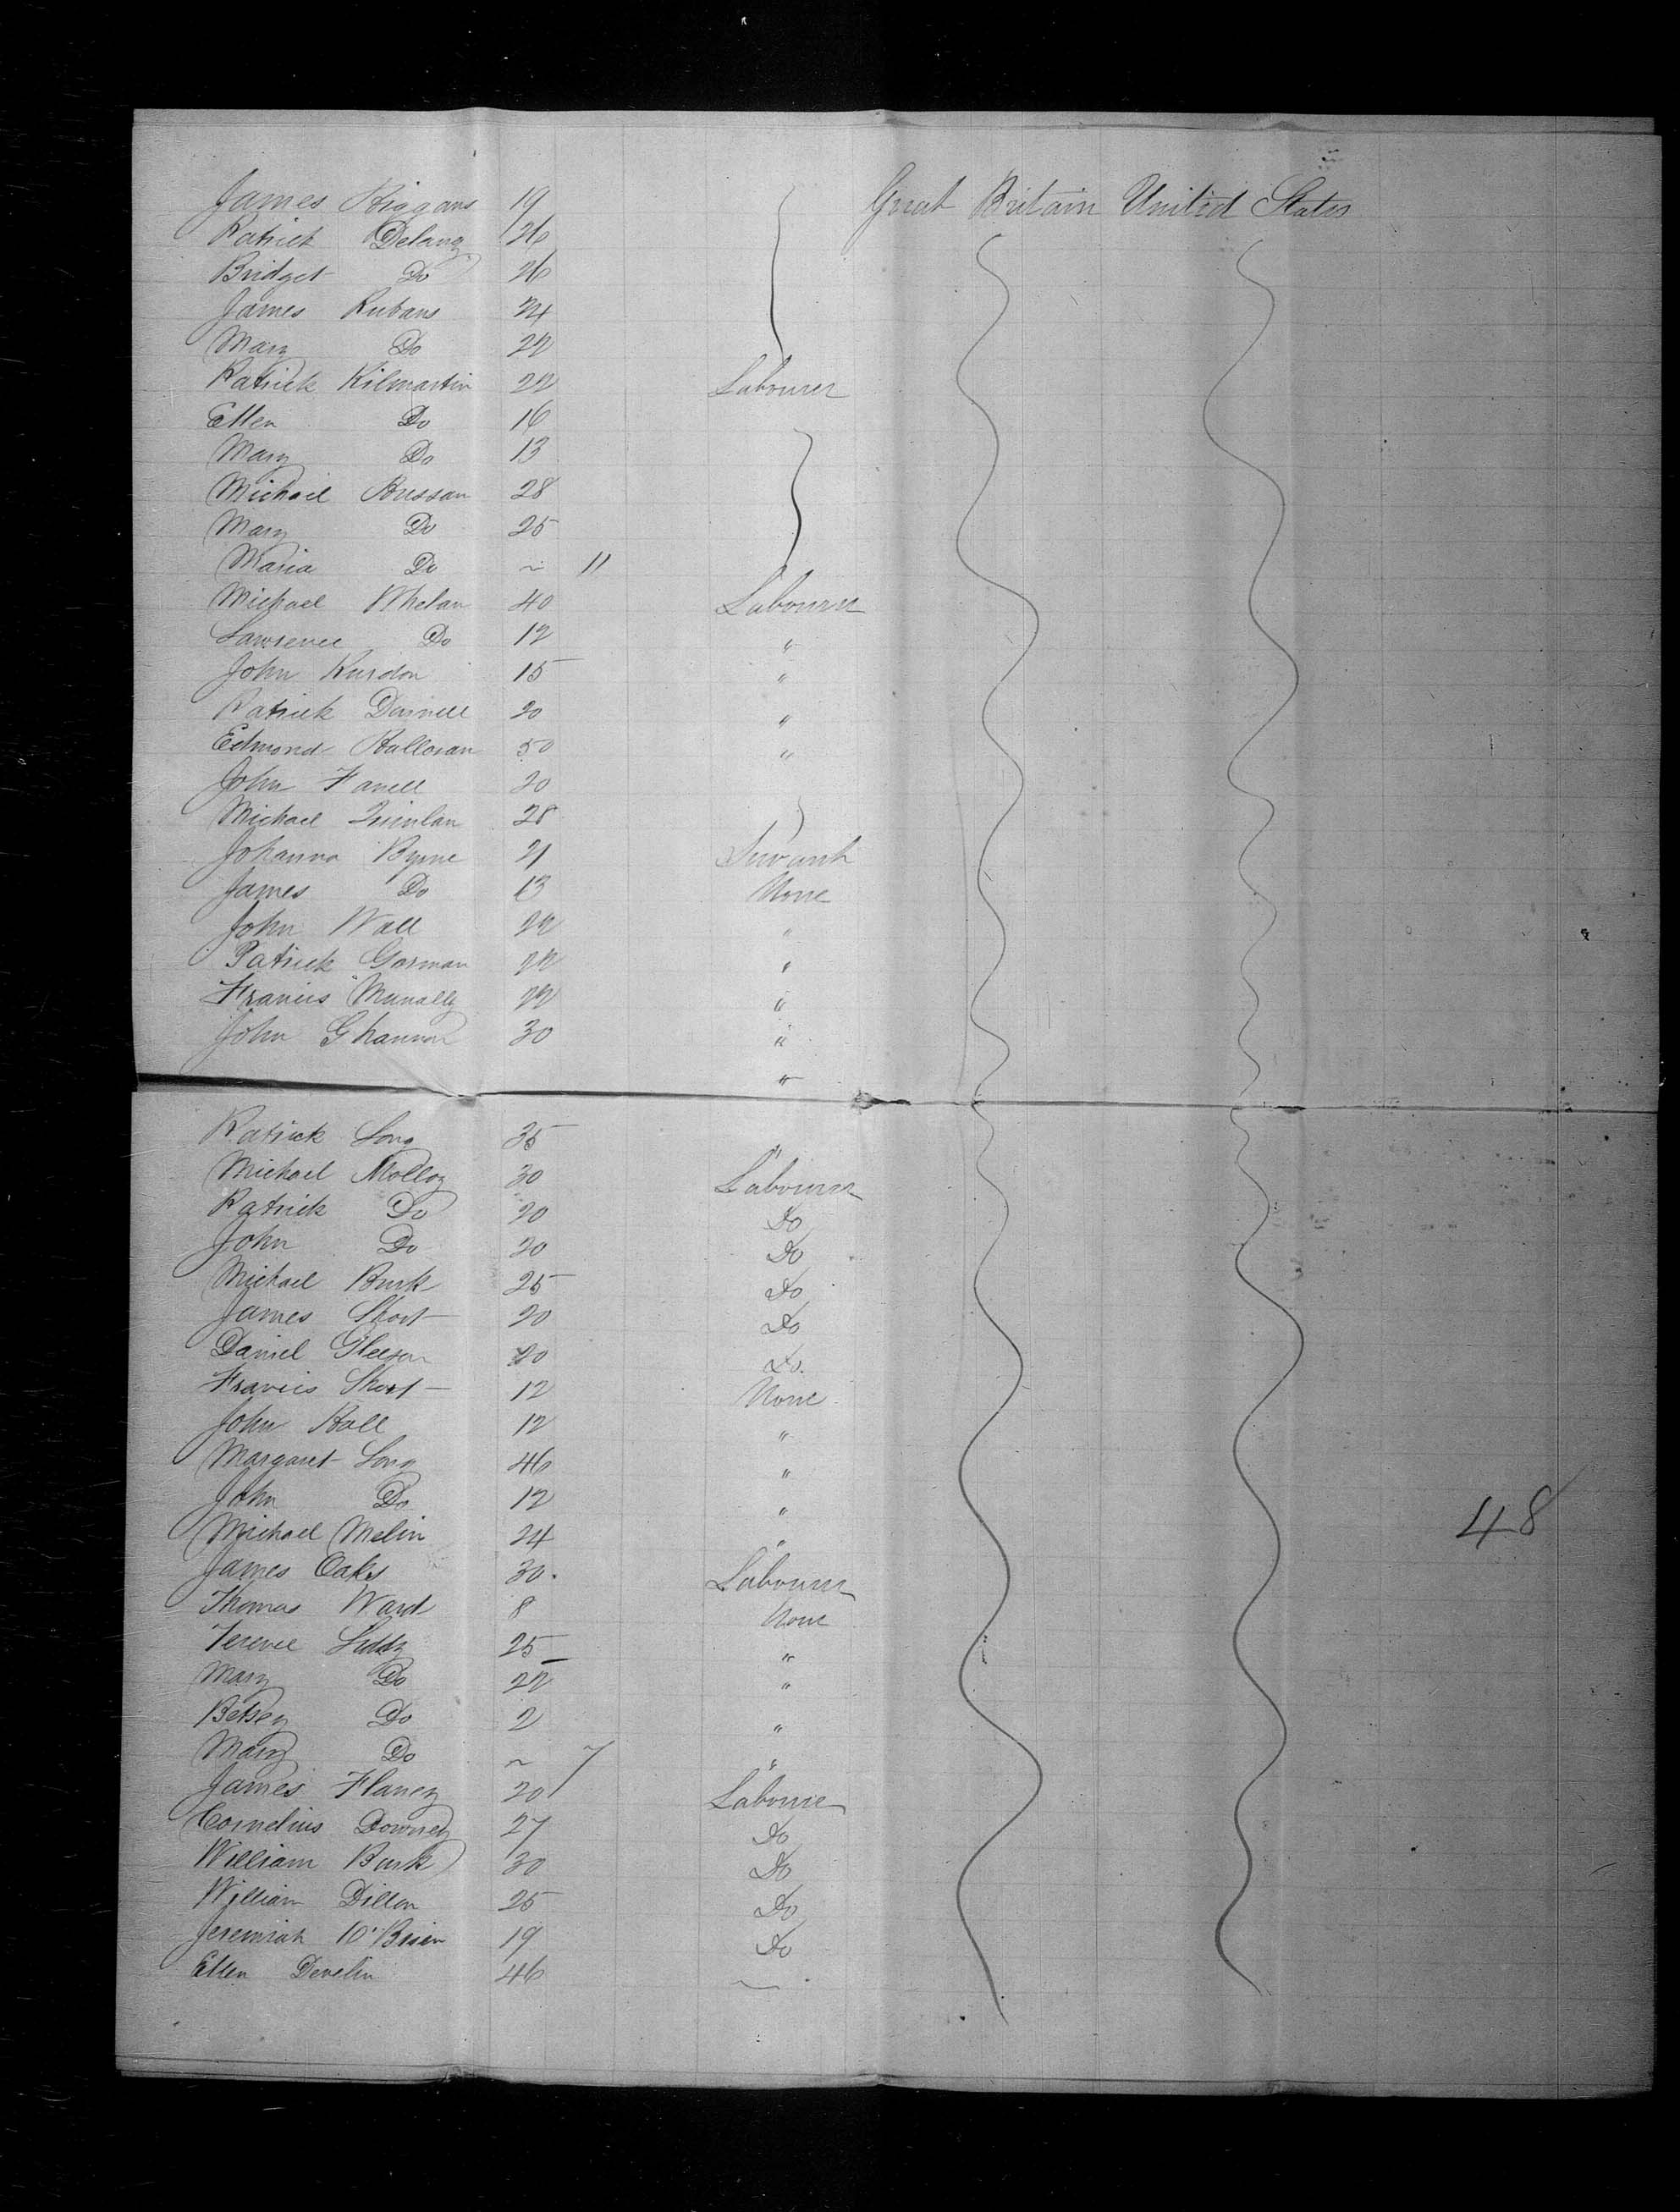 James Higgans 19 Great Britain United States
Patrick Delany 26
Bridget Do 26
James Rubans 24
Mary Do 22
Patrick Kilmartin 22 Labourer
Ellen Do 16
Mary Do 13
Michael Bressan 28
Mary Do 25
Maria Do ~ 11
Michael Whelan 40 Labourer
Lawrence Do 12 "
John Kurdon 15 "
Patrick Darnell 20 "
Edmond Halloran 50 "
John Farrell 20
Michael Quinlan 28
Johanna Byrne 21 Servant
James Do 13 None
John Wall 22 "
Patrick Gorman 22 "
Francis Munally 22 "
John Ghannon 30 "
"
Patrick Long 35 "
Michael Molloy 30 Labourer
Patrick Do 20 Do
John Do 20 Do
Michael Burk 25 Do
James Short 20 Do
Daniel Gleeson 20 Do.
Francis Short 12 None
John Hall 12 "
Margaret Long 46 "
John Do 12 "
Michael Melin 24 "
48
James Oaks 30. Labourer
Thomas Ward 8 None
Terence Liddy 25 "
Mary Do 22 "
Betsey Do 2 "
Mary Do ~ 7 "
James Flaney 20 Labourer
Cornelius Downey 27 Do
William Burk 30 Do
William Dillon 25 Do
Jeremiah O'Brien 19 Do
Ellen Develin 46 ~